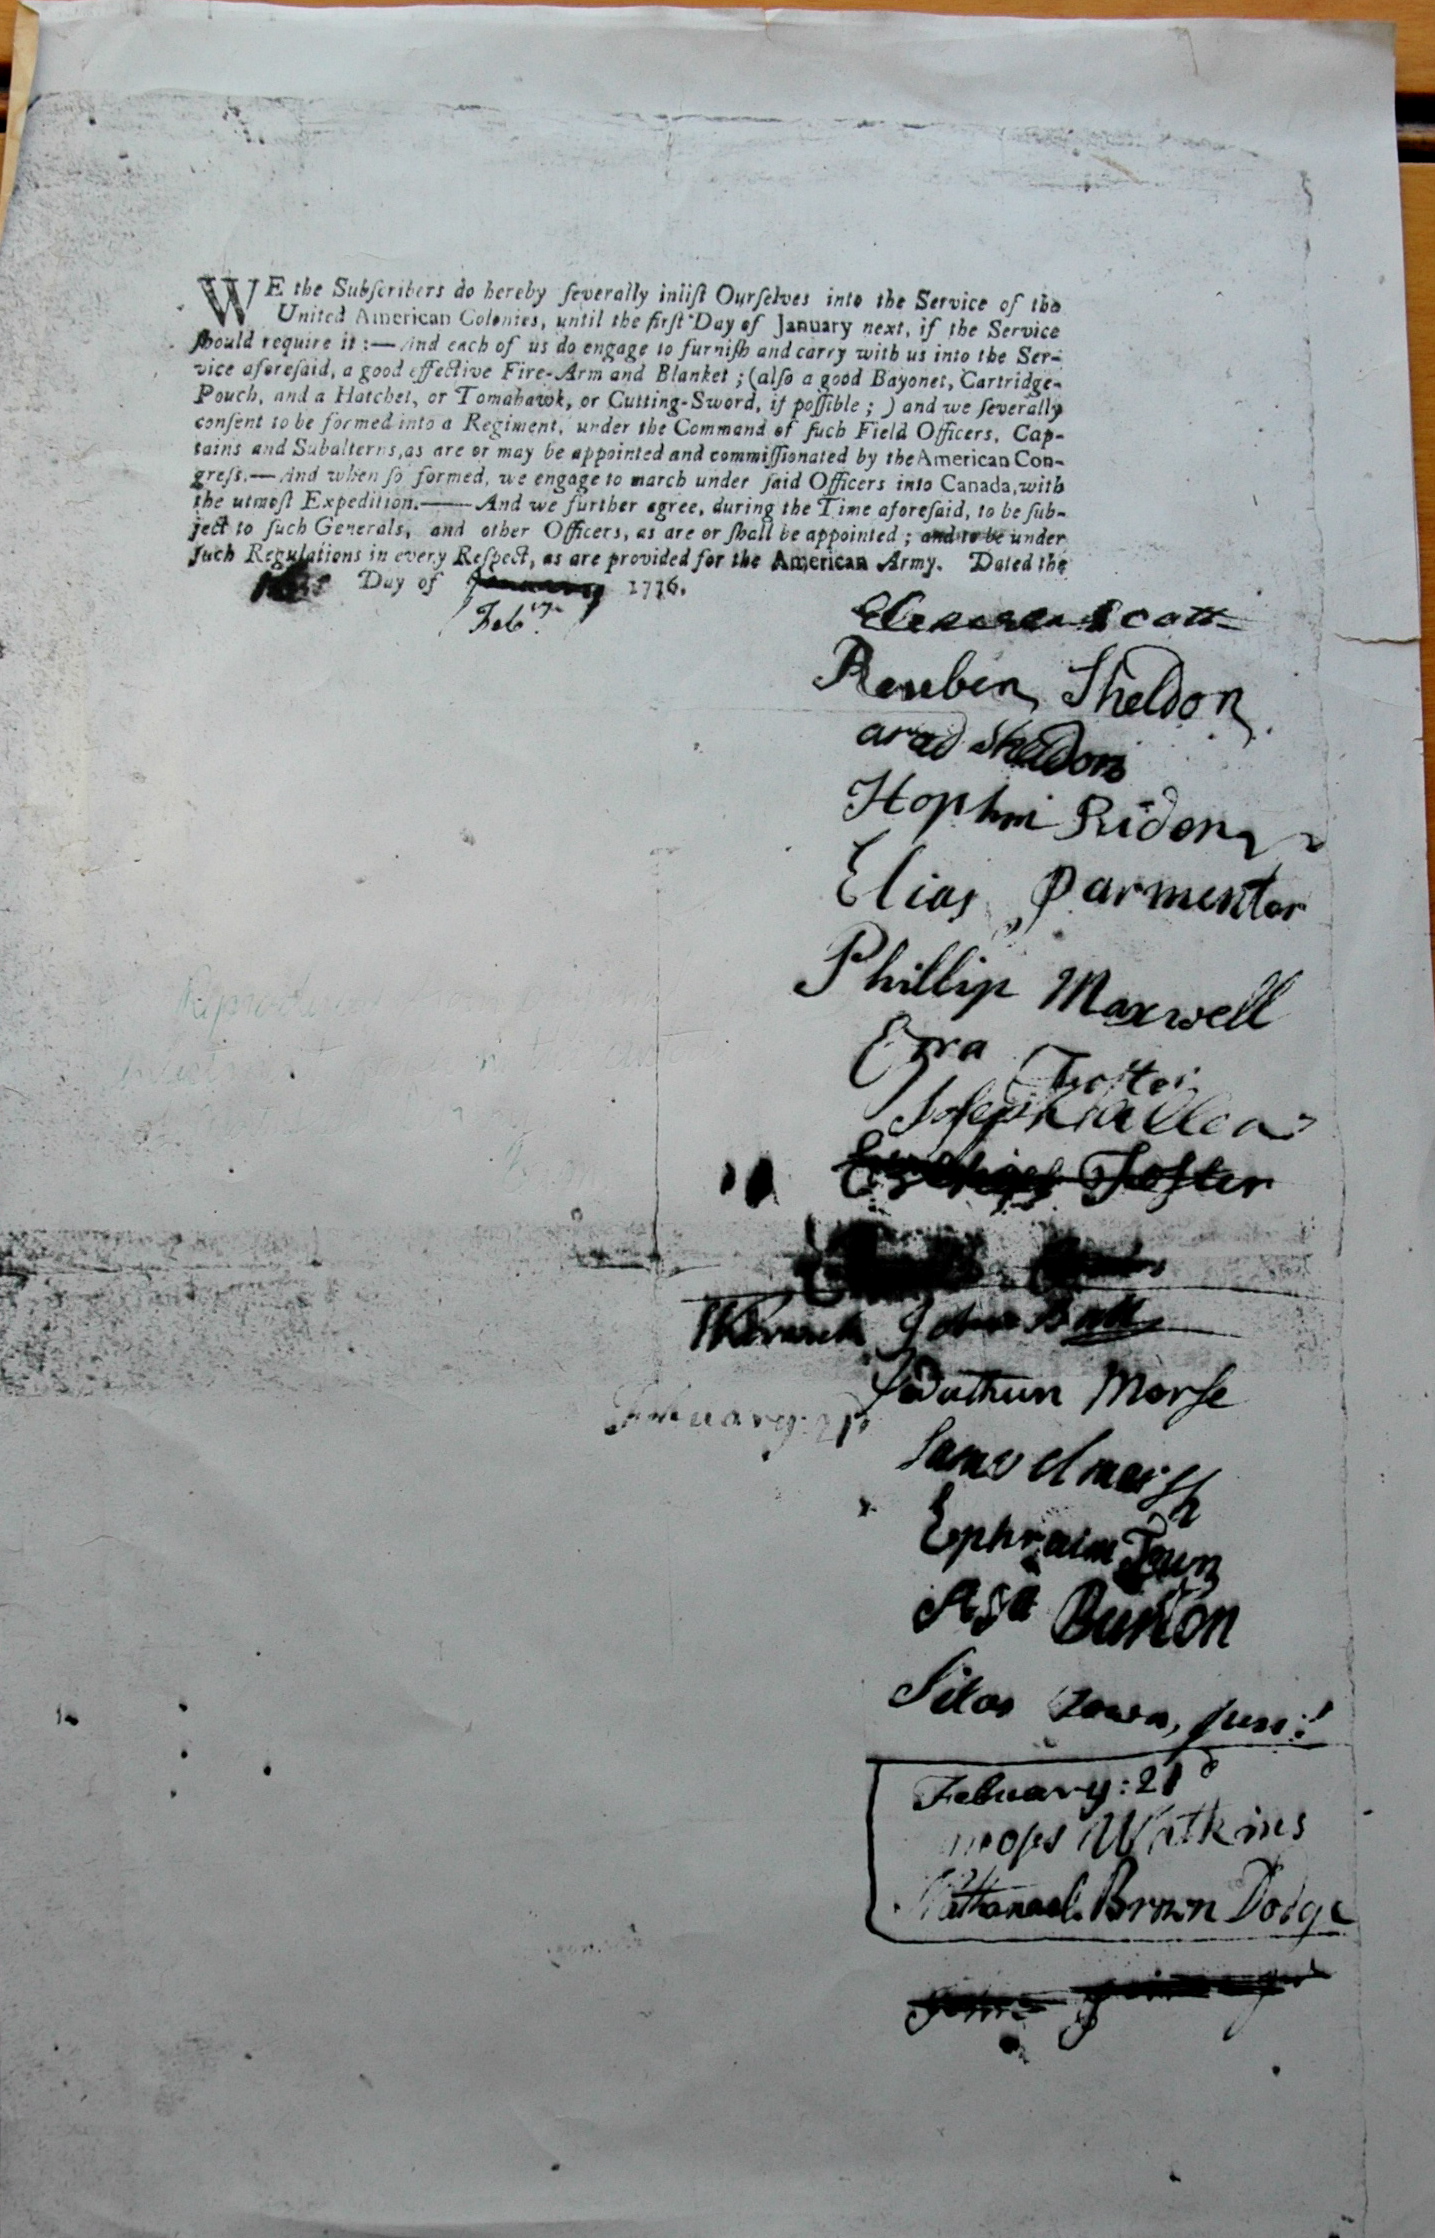 WE the Subſcribers do hereby ſeverally inliſt Ourſelves into the Service of the
United American Colonies, until the firſt Day of January next, if the Service
ſhould require it :— And each of us do engage to furniſh and carry with us into the Ser-
vice aforeſaid, a good effective Fire-Arm and Blanket ; (alſo a good Bayonet, Cartridge-
Pouch, and a Hatchet, or Tomahawk, or Cutting-Sword, if poſſible ; ) and we ſeverally
conſent to be formed into a Regiment, under the Command of ſuch Field Officers, Cap-
tains and Subalterns, as are or may be appointed and commiſſionated by the American Con-
greſs.— And when ſo formed, we engage to march under ſaid Officers into Canada, with
the utmoſt Expedition.—— And we further agree, during the Time aforeſaid, to be ſub-
ject to ſuch Generals, and other Officers, as are or ſhall be appointed ; and to be under
ſuch Regulations in every Reſpect, as are provided for the American Army. Dated the
Day of January 1776.
Feb
Scott
Reuben Sheldon
arad Sheldon
Hophni Ridon
Elias Parmentor
Phillip Maxwell
Ezra Foster
Joseph
Foster
John Ball
Morſe
Samuel marſh
Ephraim Town
Asa Burton
Febuary: 21
Silas Town, jun:
Febuary: 21
moses Watkins
Nathanael Brown Dodge